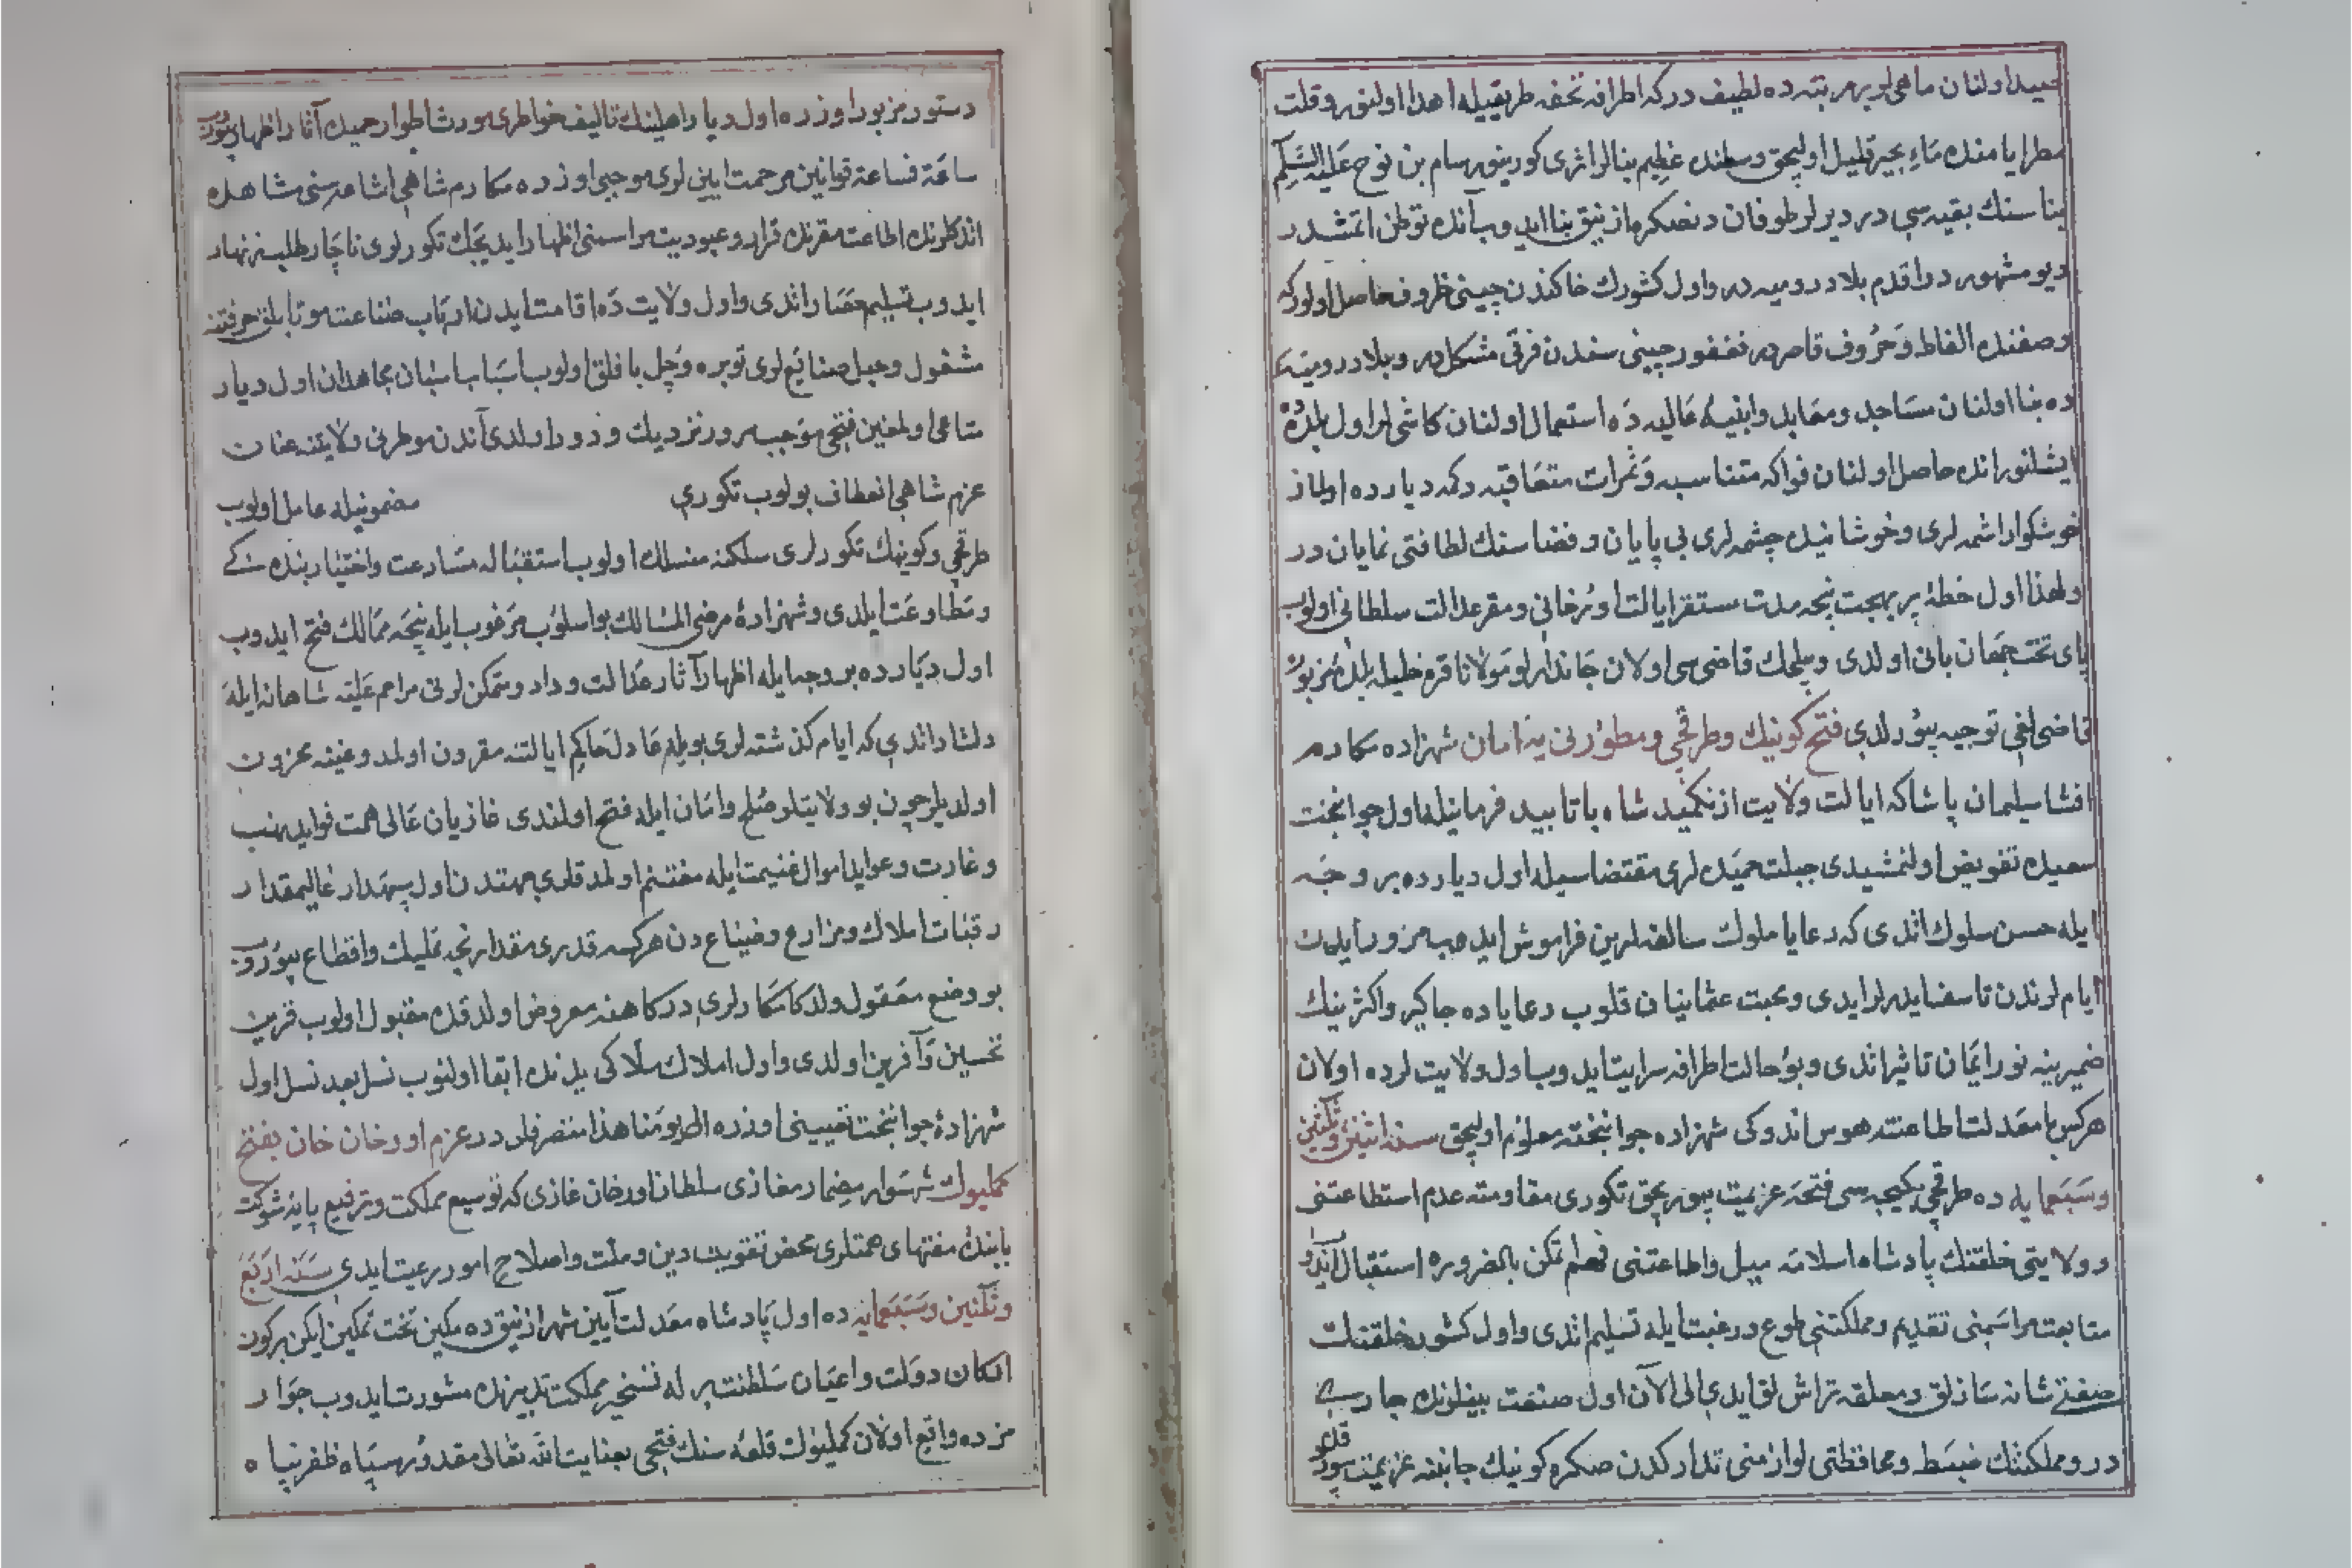 صيد اولنان ماهيلر بر مرتبه ده لطيف دركه اطرافه تحفه طريقيله اهدا اولنور وقلت
مطر ايامنده ماء بحيره قليل اوليجق وسطنده عظيم بنالر اثری كورينور سام بن نوح عليه السلام
بناسنك بقيه سی در ديرلر طوفان دنصكره ازنيق بنا ايدوب آنده توطن اتمشدر
ديو مشهور در اقدم بلاد روميه در واول كشورك خاكندن چينی ظروف حاصل اولور كه
وصفنده الفاظ وحروف قاصر در فغفور چينی سندن فرقی مشكل در وبلاد روميه
ده بنا اولنان مساجد ومعابد وابنيۀ عاليه ده استعمال اولنان كاشی لر اول بلده ده
ايشلنور انده حاصل اولنان فواكه متناسبه وثمرات متعاقبه دكمه ديارده اولماز
خوشكوار اشمه لری وخوشاينده چشمه لری بی پايان وفضاسنك لطافتی نمايان در
ولهذا اول خطۀ پر بهجت نيچه مدت مستقر ايالت اورخانی ومقر عدالت سلطانی اولوب
پای تخت جهان بانی اولدی وبيلجك قاضی سی اولان جاندارلو مولانا قره خليله بلدۀ مزبور
قاضيلغی توجيه بيورلدی فتح كوينيك وطرقجی ومطورنی به امان شهزاده مكارم
افشا سليمان پاشا كه ايالت ولايت ازنكميد شاه با تاييد فرمانيله اول جوانبخت
سعيده تفويض اولنمشيدی جبلت حميده لری مقتضاسيله اول ديارده بر وجه
ايله حسن سلوك اتدی كه رعايا ملوك سالفه لرين فراموش ايدوب مرور ايدن
ايام لرندن تاسف ايدرلر ايدی ومحبت عثمانيان قلوب رعاياده جايكير واكثرينك
ضميرينه نور ايمان تاثير اتدی وبو حالت اطرافه سرايت ايدوب اول ولايت لرده اولان
هركس با معدلت اطاعته هوس اندوكی شهزاده جوانبخته معلوم اوليجق سنه اثنين وثلثين
وسبعمايه ده طرقجی يكيجه سی فتحنه عزيمت بيوريجق تكوری مقاومته عدم استطاعتنی
وولايتی خلقنك پادشاه اسلامه ميل واطاعتنی فهم تمكن بالضروره استقبال ايدوب
متابعت مراسمنی تقديم ومملكتنی طوع ورغبت ايله تسليم اتدی واول كشور خلقنك
صنعتی شانه سازلق ومعلقه تراش لق ايدی الی الآن اول صنعت بينلرنده جاريسی
در ومملكتنك ضبط ومحافظتی لوازمنی تداركدن صكره كوينيك جانبنه عزيمت بيوردی
دستور مزبور اوزره اول ديار اهلينك تاليف خواطری مورث اطوار حميده آثار اظهار بيوروب
ساعة فساعة قوانين مرحمت ايين لری موجبی اوزره مكارم شاهی اشاعه سنی مشاهده
اتدكلرنده اطاعت مقرنده قرار وعبوديت مراسمنی اظهار ايديجك تكورلری ناچار طلب زنهار
ايدوب تسليم حصار اتدی واول ولايت ده اقامت ايدن ارباب صناعت موتابلق حرفتنه
مشغول وجل صنايع لری توبره وچل بافلق اولوب اسباب اسبان مجاهدان اول ديار
متاعی اولمغين فتحی موجب سرور نزديك ودور اولدی آندن موطرنی ولايتنه عنان
عزم شاهی انعطاف بولوب تكوری مضمونيله عامل اولوب
طرقجی وكوينك تكورلری سلكنه منسلك اولوب استقباله مسارعت واختيار بندكی
ومطاوعت ايلدی وشهزادۀ مرضی المسالك بو اسلوب مرغوب ايله نيچه ممالك فتح ايدوب
اول ديارده بر وجه ايله اظهار آثار عدالت وداد ومتمكن لرنی مراحم عليه شاهانه ايله
دلشاد اتدی كه ايام كذشته لری بويله عادل حاكم ايالتنه مقرون اولمدوغينه محزون
اولديلر چون بو ولايتلر صلح وامان ايله فتح اولندی غازيان عالی همت فوايد نهب
وغارت وعوايد اموال غنيمت ايله مغتنم اولمدقلری جهتدن اول سپهدار عاليمقدار
رقبات املاك ومزارع وضياع دن هر كمسه قدری مقدارنجه تمليك واقطاع بيوروب
بو وضع معقول ولد كامكارلری دركاهنه معروض اولدقده مقبول اولوب قرين
تحسين وآفرين اولدی واول املاك ملاكی يدنده ابقا اولنوب نسل بعد نسل اول
شهزادۀ جوانبخت تعيينی اوزره الی يومنا هذا متصرفلر در عزم اورخان خان بفتح
كمليوك شهسوار مضمار مغازی سلطان اورخان غازی كه توسيع مملكت وترفيع پايه شوكت
يابنك منتهای همتلری محض تقويت دين وملت واصلاح امور رعيت ايدی سنه اربع
وثلثين وسبعمايه ده اول پادشاه معدلت آيين شهر ازنيق ده مكين تخت تمكين ايكن بر كون
اركان دولت واعيان سلطنت بر له تسخير مملكت تدبيرنده مشورت ايدوب جوار
مزده واقع اولان كمليوك قلعه سنك فتحی بعنايت الله تعالی مقدور سپاه ظفرپناه